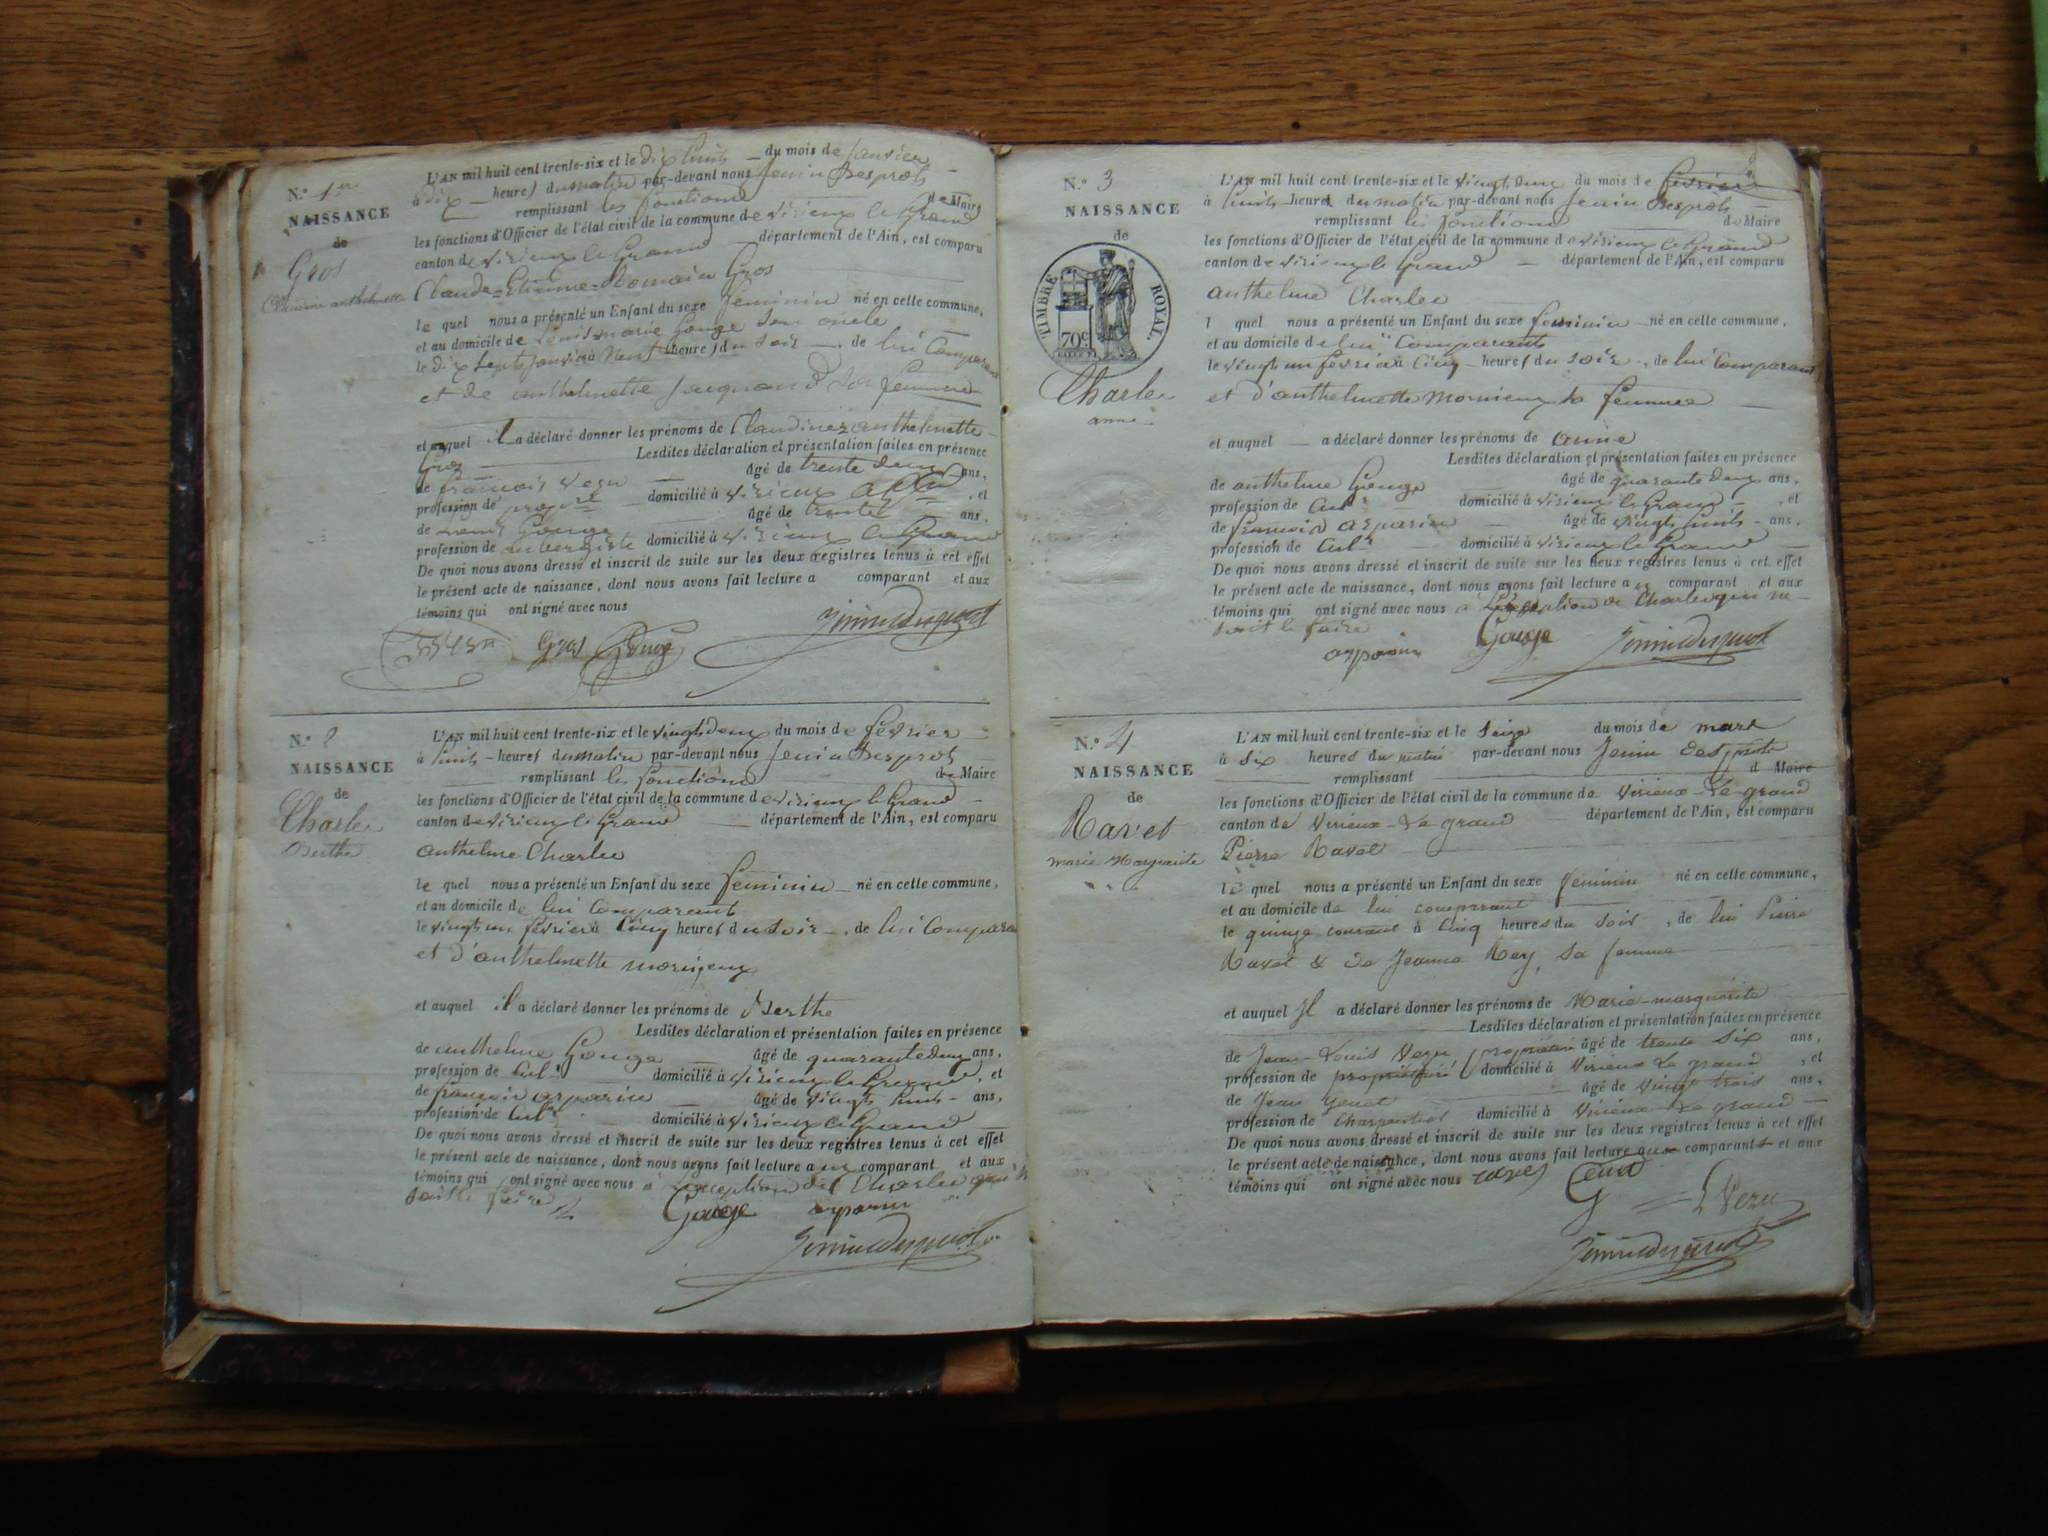 N.° 1er
NAISSANCE
de
Gros
Claudine anthelmette
L'AN mil huit cent trente-six et le dix huit du mois de Janvier
à dix heures du matin par-devant nous Jenin Desprots
remplissant les fonctions de Maire
les fonctions d'Officier de l'état civil de la commune de virieux le Grand
canton de virieux le Grand département de l'Ain, est comparu
Claude=Etienne=Romain Gros
le quel nous a présenté un Enfant du sexe feminin né en cette commune,
et au domicile de Louis marie Gouge son oncle
le dix sept Janvier à Neuf heures du soir de lui Comparant
et de anthelmette Jacquand sa femme
et auquel il a déclaré donner les prénoms de Claudine anthelmette
Gros Lesdites déclaration et présentation faites en présence
de françois vezu âgé de trente deux ans,
profession de propre domicilié à virieux , et
de Gouge âgé de trente ans,
profession de aubergiste domicilié à virieux le Grand
De quoi nous avons dressé et inscrit de suite sur les deux registres tenus à cet effet
le présent acte de naissance, dont nous avons fait lecture a comparant et aux
témoins qui ont signé avec nous
Gros Gouge
N.° 2
NAISSANCE
de
Charles
Berthe
L'AN mil huit cent trente-six et le vingt deux du mois de février
à huit heures du matin par-devant nous Jenin Desprots
remplissant les fonctions de Maire
les fonctions d'Officier de l'état civil de la commune de virieux le Grand
canton de virieux le Grand département de l'Ain, est comparu
anthelme Charles
le quel nous a présenté un Enfant du sexe feminin né en cette commune,
et au domicile de lui Comparant
le vingt un février à Cinq heures du soir , de lui Comparant
et d'anthelmette mornieux
et auquel il a déclaré donner les prénoms de Berthe
Lesdites déclaration et présentation faites en présence
de anthelme Gouge âgé de quarante deux ans,
profession de Culr domicilié à virieux le Grand , et
de françois asparin âgé de vingt huit ans,
profession de Culr domicilié à virieux le Grand
De quoi nous avons dressé et inscrit de suite sur les deux registres tenus à cet effet
le présent acte de naissance, dont nous avons fait lecture a comparant et aux
témoins qui ont signé avec nous à L'exception de Charles qui n
sait le faire
Gouge asparin
N.° 3
NAISSANCE
de
TIMBRE ROYAL
70c
Charles
anne
L'AN mil huit cent trente-six et le vingt deux du mois de février
à huit heures du matin par-devant nous Jenin Desprots
remplissant les fonctions de Maire
les fonctions d'Officier de l'état civil de la commune de virieux le Grand
canton de virieux le Grand département de l'Ain, est comparu
anthelme Charles
l quel nous a présenté un Enfant du sexe feminin né en cette commune,
et au domicile de lui Comparant
le vingt un février à Cinq heures du soir , de lui Comparant
et d'anthelmette Mornieux sa femme
et auquel a déclaré donner les prénoms de anne
Lesdites déclaration et présentation faites en présence
de anthelme Gouge âgé de quarante deux ans,
profession de Culr domicilié à virieux le Grand , et
de françois asparin âgé de vingt huit ans,
profession de Culr domicilié à virieux le Grand
De quoi nous avons dressé et inscrit de suite sur les deux registres tenus à cet effet
le présent acte de naissance, dont nous avons fait lecture a comparant et aux
témoins qui ont signé avec nous à L'exception de Charles qui ne
sait le faire
asparin Gouge
N.° 4
NAISSANCE
de
Ravet
marie Marguerite
L'AN mil huit cent trente-six et le seize du mois de mars
à six heures du matin par-devant nous Jenin Desprots
remplissant d Maire
les fonctions d'Officier de l'état civil de la commune de Virieux-Le-grand
canton de Virieux-Le grand département de l'Ain, est comparu
Pierre Ravet
le quel nous a présenté un Enfant du sexe féminin né en cette commune,
et au domicile de lui comparant
le quinze courant à Cinq heures du soir , de lui Pierre
Ravet & de Jeanne Rey, sa femme
et auquel Il a déclaré donner les prénoms de Marie-marguerite
Lesdites déclaration et présentation faites en présence
de Jean-Louis Vezu propriétaire âgé de trente six ans,
profession de propriétaire domicilié à Virieux Le grand , et
de Jean Genet âgé de vingt trois ans,
profession de Charpentier domicilié à Virieux-Le grand
De quoi nous avons dressé et inscrit de suite sur les deux registres tenus à cet effet
le présent acte de naissance, dont nous avons fait lecture aux comparants et aux
témoins qui ont signé avec nous
L Vezu